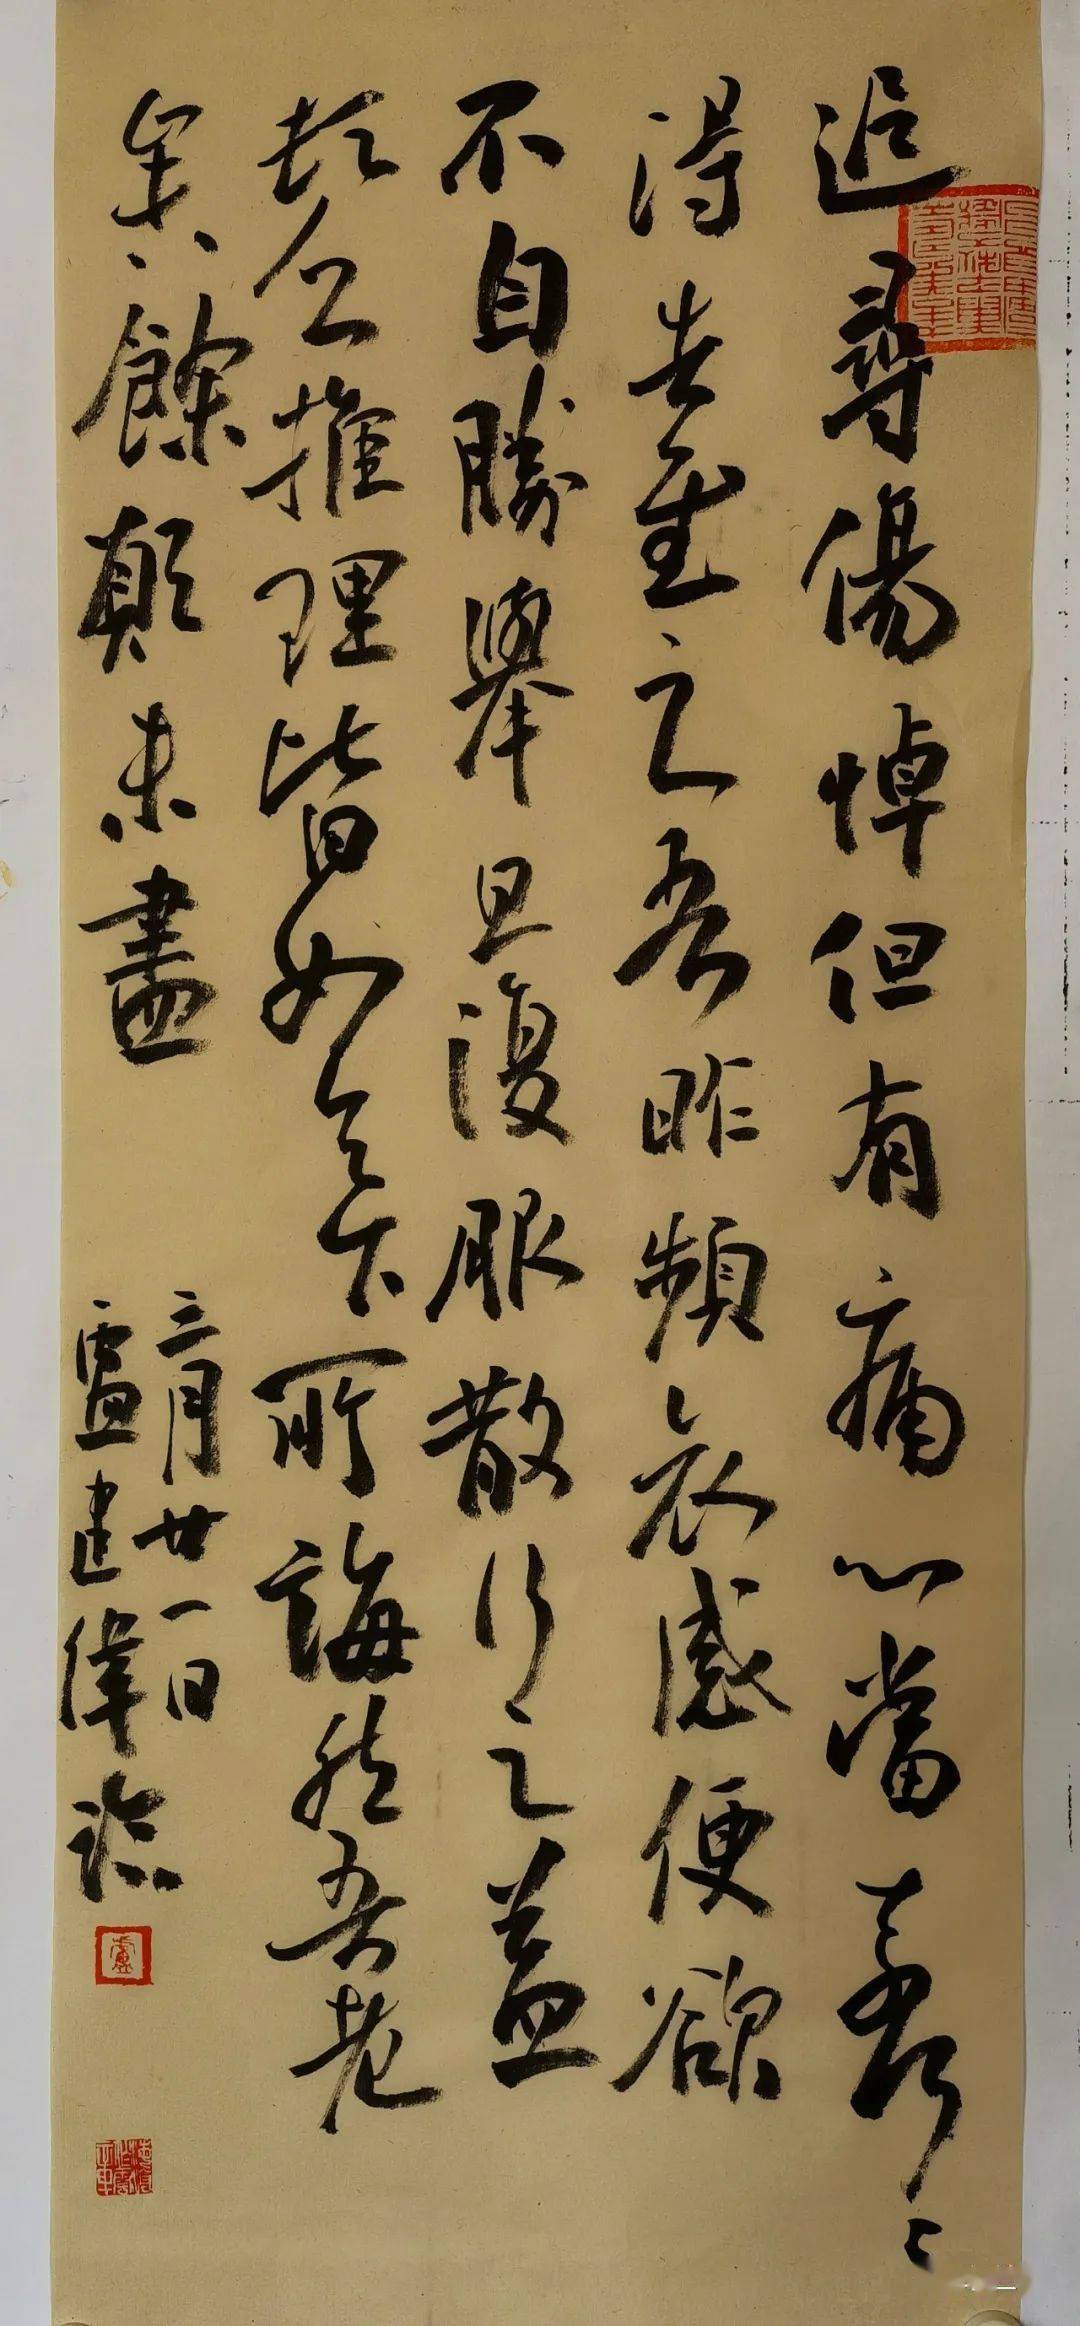 追尋傷悼但有痛心當奈何〻〻
得告慰之吾昨頻哀感便欲
不自勝舉旦復服散行之益
頓乏推理皆如足下所誨然吾老
矣餘願未盡
三月廿一日
盧建偉臨
盧